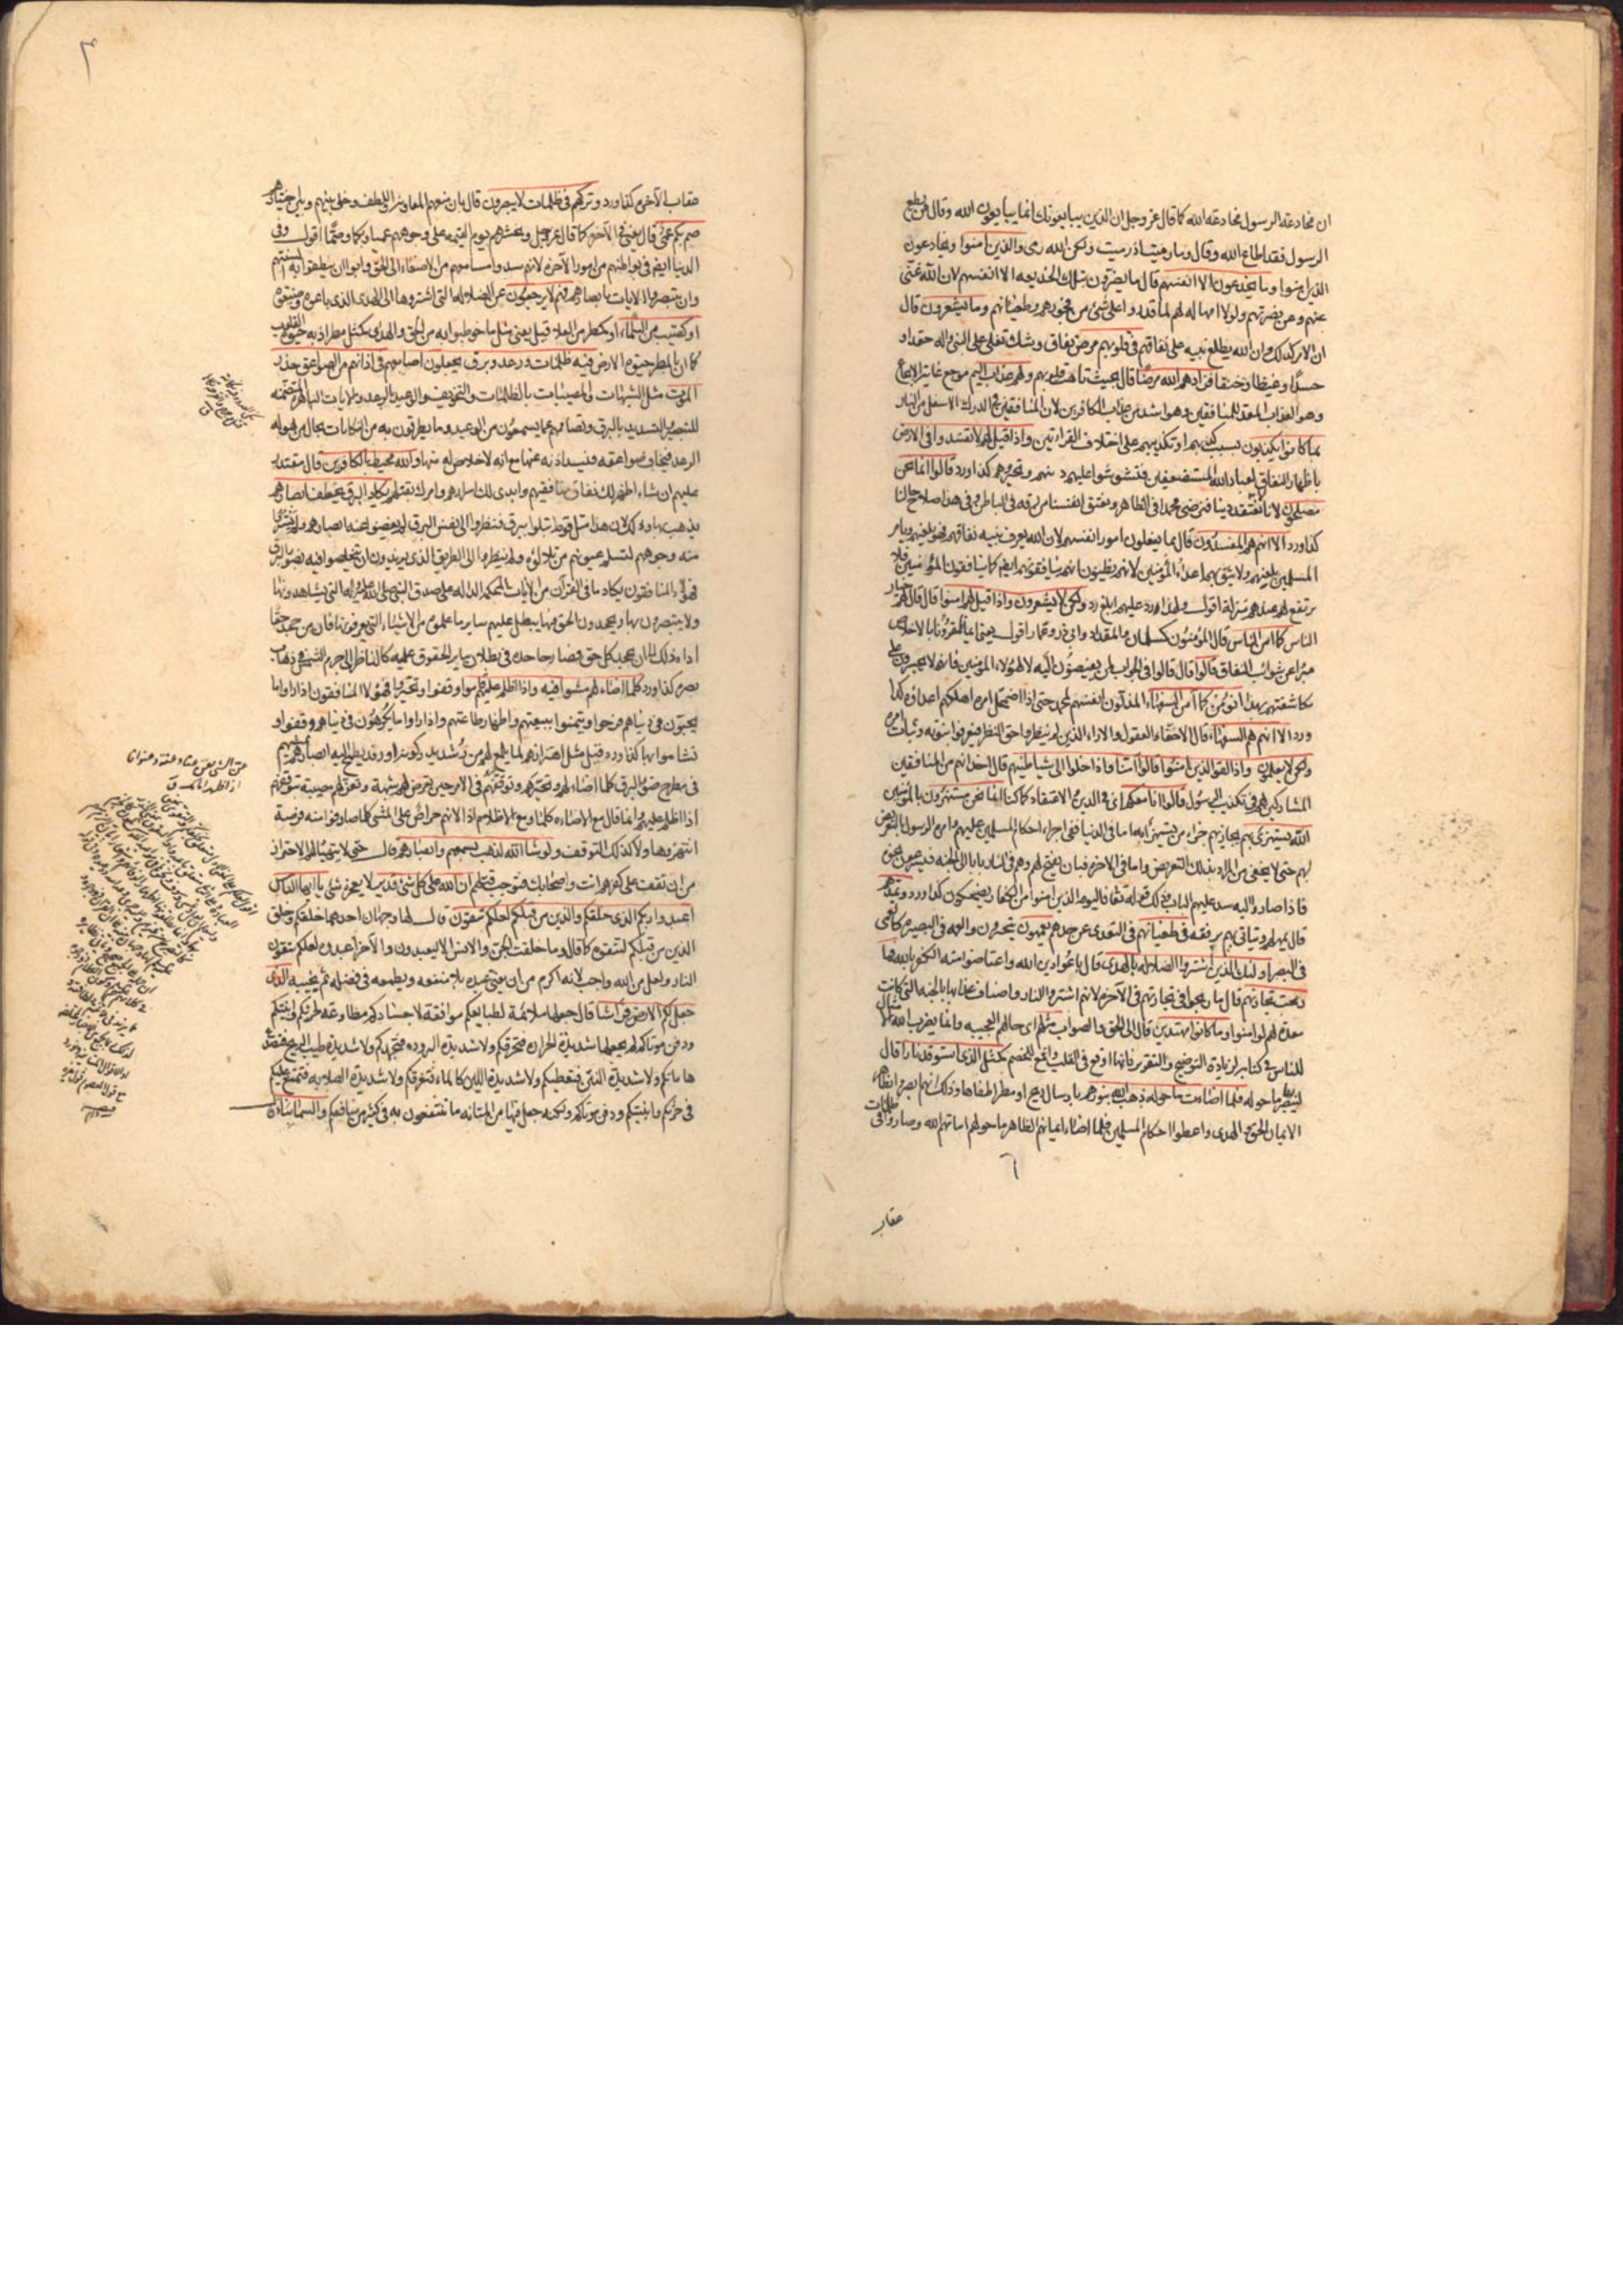 ان مخادعة الرسول مخادعة الله كما قال عز وجل ان الذين يبايعونك انما يبايعون الله وقال من يطع
الرسول فقد اطاع الله وقال وما رميت اذ رميت ولكن الله رمى والذين امنوا ويخادعون
الذين امنوا وما يخدعون الا انفسهم قال ما يضرون بتلك الخديعة الا انفسهم لان الله غنى
عنهم وعن نصرتهم ولولا امهاله لهم لما قدروا على شئ من فجورهم وطغيانهم وما يشعرون قال
ان الامر كذلك وان الله يطلع نبيه على نفاقهم فى قلوبهم مرض نفاق وشك تغلى على النبى واله حقدا و
حسدا وغيظا وخنقا فزادهم الله مرضا قال بحيث تاهت قلوبهم ولهم عذاب اليم موجع غاية الايجاع
وهو العذاب المعد للمنافقين وهو اشد من عذاب الكافرين لان المنافقين فى الدرك الاسفل من النار
بما كانوا يكذبون بسبب كذبهم او تكذيبهم على اختلاف القراءتين واذا قيل لهم لا تفسدوا فى الارض
باظهار النفاق لعباد الله المستضعفين فتشوشوا عليهم دينهم وتحيروهم كذا ورد قالوا انما نحن
مصلحون لانا لا نعتقد دينا فنرضى محمدا فى الظاهر ونعتق انفسنا من رقه فى الباطن وفى هذا صلاح حالنا
كذا ورد الا انهم هم المفسدون قال بما يفعلون امور انفسهم لان الله يعرف نبيه نفاقهم فهو يلعنهم ويامر
المسلمين بلعنهم ولا يثق بهم اعداء المؤمنين لانهم يظنون انهم ينافقونهم ايضا كما ينافقون المؤمنين فلا
يرتفع لهم عندهم منزلة اقول ولهذا رد عليهم ابلغ رد ولكن لا يشعرون واذا قيل لهم امنوا قال قال لهم خيار
الناس كما امن الناس قال المؤمنون كسلمان والمقداد وابى ذر وعمار اقول يعنى ايمانا مقرونا بالاخلاص
مبرا عن شوائب النفاق قالوا قال قالوا فى الجواب لمن يفيضون اليه لا لهؤلاء المؤمنين فانهم لا يجسرون على
مكاشفتهم بهذا انؤمن كما امن السفهاء المذلون انفسهم لمحمد حتى اذا اضمحل امره اهلكهم اعداؤه كذا
ورد الا انهم هم السفهاء قال الاخفاء العقول والاراء الذين لم ينظروا حق النظر فيعرفوا نبوته وثبات امره
ولكن لا يعلمون واذا لقوا الذين امنوا قالوا آمنا واذا خلوا الى شياطينهم قال اخدانهم من المنافقين
المشاركين لهم فى تكذيب الرسول قالوا انا معكم اى فى الدين والاعتقاد كما كنا انما نحن مستهزؤن بالمؤمنين
الله يستهزئ بهم يجازيهم جزاء من يستهزئ به اما فى الدنيا ففى اجراء احكام المسلمين عليهم وامره الرسول بالتعريض
لهم حتى لا يخفى من المراد بذلك التعريض واما فى الاخرة فبان يفتح لهم وهم فى النار بابا الى الجنة فيسرعون نحوه
فاذا صاروا اليه سد عليهم الباب وذلك قوله تعا فاليوم الذين امنوا من الكفار يضحكون كذا ورد ويمدهم
قال يمهلهم ويتانى بهم برفقه فى طغيانهم فى التعدى عن حدهم يعمهون يتحيرون والعمه فى البصيرة كالعمى
فى البصر اولئك الذين اشتروا الضلالة بالهدى قال باعوا دين الله واعتاضوا منه الكفر بالله فما
ربحت تجارتهم قال ما ربحوا فى تجارتهم فى الآخرة لانهم اشتروا النار واصناف عذابها بالجنة التى كانت
معدة لهم لو امنوا وما كانوا مهتدين قال الى الحق والصواب مثلهم اى حالهم العجيبة وانما يضرب الله الامثال
للناس فى كتابه لزيادة التوضيح والتقرير فانها اوقع فى القلب واقمع للخصم كمثل الذى استوقد نارا قال
ليبصر بها ما حوله فلما اضاءت ما حوله ذهب الله بنورهم بارسال ريح او مطر اطفاها وذلك انهم ابصروا بظاهر
الايمان الحق والهدى واعطوا احكام المسلمين فلما اضاء ايمانهم الظاهر ما حولهم اماتهم الله وصاروا فى ظلمات
عقاب
عقاب الآخرة كذا ورد وتركهم فى ظلمات لا يبصرون قال بان منعهم المعاونة واللطف وخلى بينهم وبين اختيارهم
صم بكم عمى قال يعنى فى الآخرة كما قال عز وجل ونحشرهم يوم القيمة على وجوههم عميا وبكما وصما اقول وفى
الدنيا ايضا فى بواطنهم من امور الآخرة لانهم سدوا مسامعهم من الاصغاء الى الحق وابوا ان ينطقوا به السنتهم
وان يتبصروا الايات بابصارهم فهم لا يرجعون عن الضلالة التى اشتروها الى الهدى الذى باعوه وضيعوه
او كصيب من السماء او كمطر من العلا قيل يعنى مثل ما خوطبوا به من الحق والهدى كمثل مطر اذ به حيوة القلوب
كما ان بالمطر حيوة الارض فيه ظلمات ورعد وبرق يجعلون اصابعهم فى اذانهم من الصواعق حذر
الموت مثل الشبهات والمصيبات بالظلمات والتخويف والوعيد بالرعد والآيات الباهرة المتضمنة
للتبصير والتسديد بالبرق وتصاممهم عما يسمعون من الوعيد وما يطرقون به من النكايات بحال من هوله
الرعد فيخاف صواعقه فيسد اذنه عنها مع انه لا خلاص له منها والله محيط بالكافرين قال مقتدر
عليهم ان شاء اظهر لك نفاق منافقيهم وابدى لك اسرارهم وامرك بقتلهم يكاد البرق يخطف ابصارهم
يذهب بها وذلك لان هذا مثل قوم ابتلوا ببرق فنظروا الى نفس البرق لم يغضوا عنه ابصارهم ولم يستروا
منه وجوههم لتسلم عيونهم من تلالؤه ولم ينظروا الى الطريق الذى يريدون ان يتخلصوا فيه بضوء البرق
فهؤلاء المنافقون يكاد ما فى القرآن من الآيات المحكمة الدالة على صدق النبى صلى الله عليه واله التى يشاهدونها
ولا يتبصرون بها ويجحدون الحق فيها يبطل عليهم ساير ما علموه من الاشياء التى يعرفونها فان من جحد حقا
اداه ذلك الى ان يجحد كل حق فصار جاحده فى بطلان ساير الحقوق عليه كالناظر الى جرم الشمس فى ذهاب
بصره كذا ورد كلما اضاء لهم مشوا فيه واذا اظلم عليهم قاموا وقفوا وتحيروا فهؤلاء المنافقون اذا راوا ما
يحبون فى دنياهم فرحوا وتيمنوا ببيعتهم واظهار طاعتهم واذا راوا ما يكرهون فى دنياهم وقفوا و
تشاموا بها كذا ورد وقيل مثل اهتزازهم لما يلمع لهم من رشد يدركونه او رفد يطمح اليه ابصارهم بمشيهم
فى مطرح ضوء البرق كلما اضاء لهم وتحيرهم وتوقفهم فى الامر حين تعرض لهم شبهة وتعن لهم مصيبة بتوقفهم
اذا اظلم عليهم وانما قال مع الاضاءة كلما ومع الاظلام اذا لانهم حراص على المشى كلما صادفوا منه فرصة
انتهزوها ولا كذلك التوقف ولو شاء الله لذهب بسمعهم وابصارهم قال حتى لا يتهيا لهم الاحتراز
من ان تقف على كفرهم انت واصحابك فتوجب قتلهم ان الله على كل شئ قدير لا يعجزه شئ يا ايها الناس
اعبدوا ربكم الذى خلقكم والذين من قبلكم لعلكم تتقون قال لها وجهان احدهما خلقكم وخلق
الذين من قبلكم لتتقوه كما قال وما خلقت الجن والانس الا ليعبدون والآخر اعبدوه لعلكم تتقون
النار ولعل من الله واجب لانه اكرم من ان يعنى عبده بلا منفعة ويطمعه فى فضله ثم يخيبه الذى
جعل لكم الارض فراشا قال جعلها ملائمة لطبايعكم موافقة لاجسادكم مطاوعة لحرثكم وابنيتكم
ودفن موتاكم لم يجعلها شديدة الحرارة فتحرقكم ولا شديدة البرودة فتجمدكم ولا شديدة طيب الريح فتصدع
هاماتكم ولا شديدة النتن فتعطبكم ولا شديدة اللين كالماء فتغرقكم ولا شديدة الصلابة فتمتنع عليكم
فى حرثكم وابنيتكم ودفن موتاكم ولكنه جعل فيها من المتانة ما تنتفعون به فى كثير من منافعكم والسماء بناء